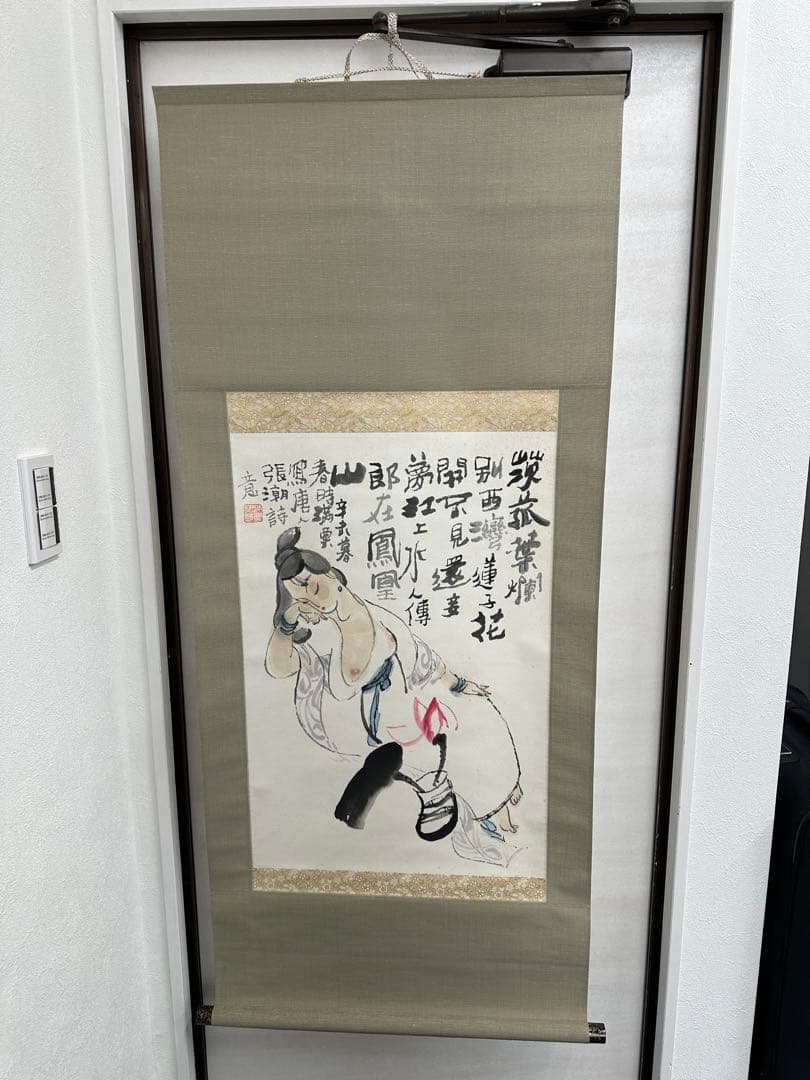 茨菰葉爛
别西灣蓮子花
開不見還妾
夢江上水人傳
郎在鳳凰
山辛未暮
春時
寫唐人
張潮詩
意